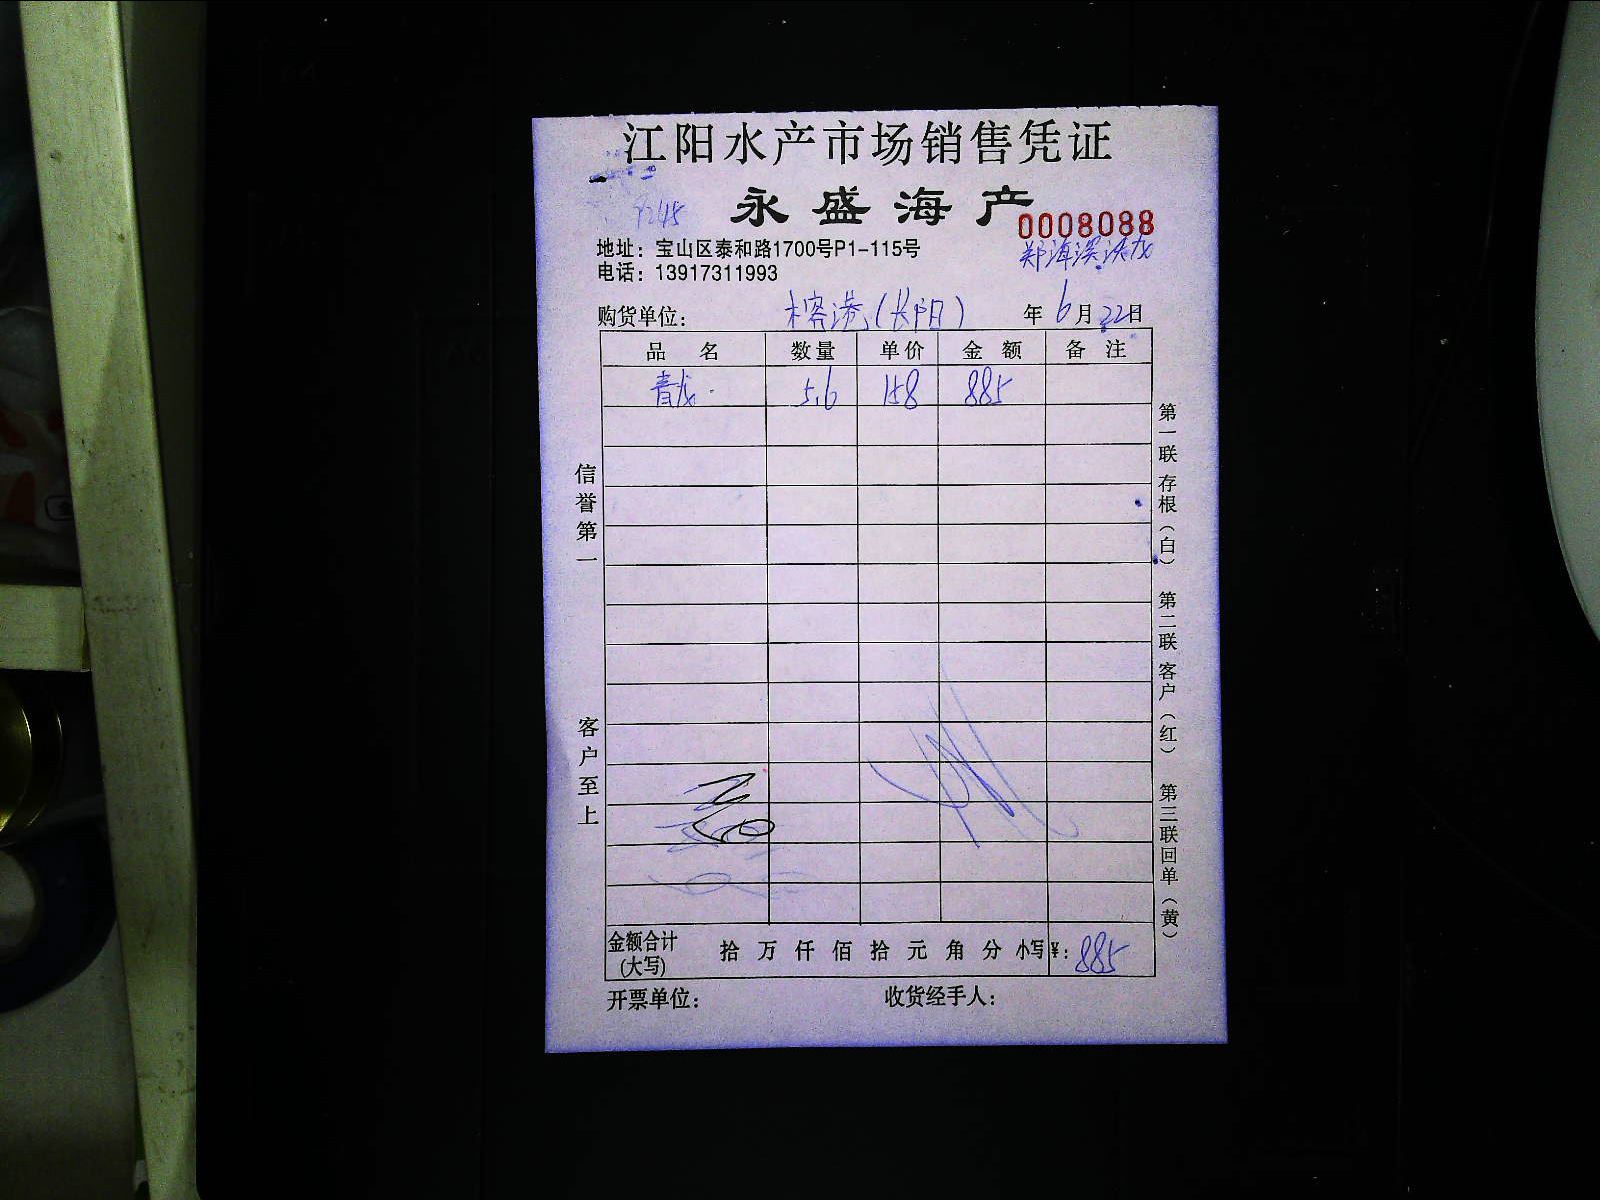 江阳水产市场销售凭证
永盛海产
0008088
地址：宝山区泰和路1700号P1-115号
电话：13917311993
购货单位：榕港（长阳） 年6月22日
品名 数量 单价 金额 备注
青龙 5.6 158 885
信誉第一
客户至上
第一联存根（白） 第二联客户（红） 第三联回单（黄）
金额合计（大写） 拾万仟佰拾元角分 小写¥：885
开票单位： 收货经手人：